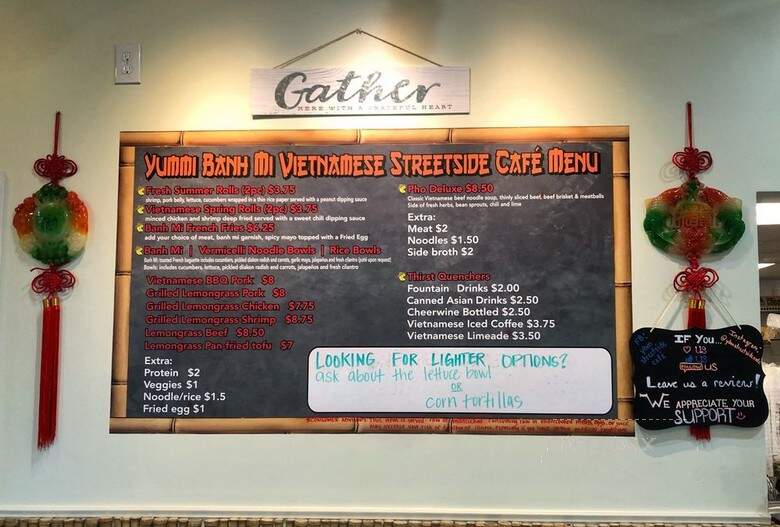 Gather
HERE WITH A GRATEFUL HEART
YUMMI BANH MI VIETNAMESE STREETSIDE CAFÉ MENU
Fresh Summer Rolls (2pc) $3.75
shrimp, pork belly, lettuce, cucumbers wrapped in a thin rice paper served with a peanut dipping sauce
Vietnamese Spring Rolls (2pc) $3.75
minced chicken and shrimp deep fried served with a sweet chili dipping sauce
Banh Mi French Fries $6.25
add your choice of meat, banh mi garnish, spicy mayo topped with a Fried Egg
Banh Mi | Vermicelli Noodle Bowls | Rice Bowls
Banh Mi: toasted French baguette includes cucumbers, pickled daikon radish and carrots, garlic mayo, jalapeños and fresh cilantro (pate upon request)
Bowls: includes cucumbers, lettuce, pickled daikon radish and carrots, jalapeños and fresh cilantro
Vietnamese BBQ Pork $8
Grilled Lemongrass Pork $8
Grilled Lemongrass Chicken $7.75
Grilled Lemongrass Shrimp $8.75
Lemongrass Beef $8.50
Lemongrass Pan-fried tofu $7
Extra:
Protein $2
Veggies $1
Noodle/rice $1.5
Fried egg $1
Pho Deluxe $8.50
Classic Vietnamese beef noodle soup, thinly sliced beef, beef brisket & meatballs
Side of fresh herbs, bean sprouts, chili and lime
Extra:
Meat $2
Noodles $1.50
Side broth $2
Thirst Quenchers
Fountain Drinks $2.00
Canned Asian Drinks $2.50
Cheerwine Bottled $2.50
Vietnamese Iced Coffee $3.75
Vietnamese Limeade $3.50
LOOKING FOR LIGHTER OPTIONS?
ask about the lettuce bowl
OR
corn tortillas
IF You...
US
US
FOLLOW US
Leave us a review!
WE APPRECIATE YOUR
SUPPORT
Instagram